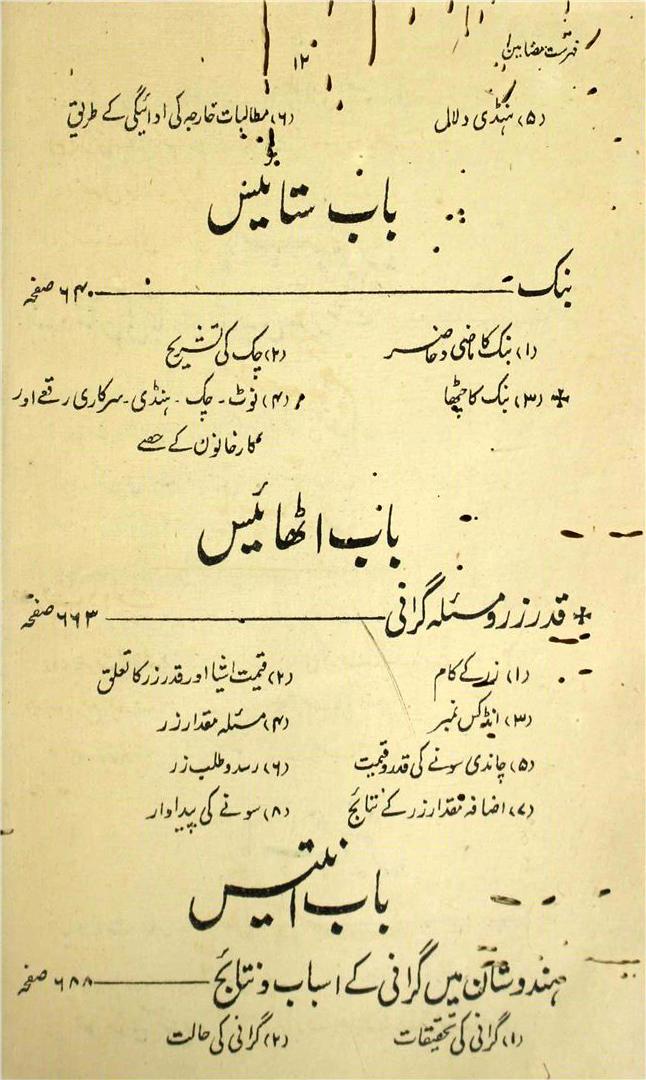 فہرست مضامین
۱۲
(۵) ہنڈی و دلال (۶) مطالبات خارجہ کی ادائیگی کے طریق
باب ستائیس
بنک ۶۴۰ صفحہ
(۱) بنک کا ماضی و حاضر (۲) چک کی تشریح
(۳) بنک کا چٹھا (۴) نوٹ - چک - ہنڈی - سرکاری رقعے اور
کارخانون کے حصے
باب اٹھائیس
قدر زر و مسئلہ گرانی ۶۶۳ صفحہ
(۱) زر کے کام (۲) قیمت اشیا اور قدر زر کا تعلق
(۳) انڈکس نمبر (۴) مسئلہ مقدار زر
(۵) چاندی سونے کی قدر و قیمت (۶) رسد و طلب زر
(۷) اضافہ مقدار زر کے نتائج (۸) سونے کی پیداوار
باب انتیس
ہندوستان میں گرانی کے اسباب و نتائج ۶۸۸ صفحہ
(۱) گرانی کی تحقیقات (۲) گرانی کی حالت